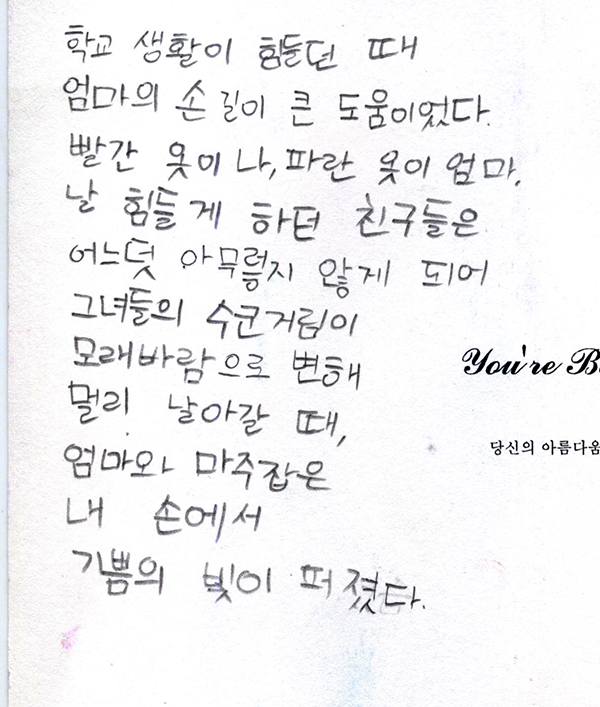 학교 생활이 힘들던 때
엄마의 손 길이 큰 도움이었다.
빨간 옷이 나, 파란 옷이 엄마.
날 힘들게 하던 친구들은
어느덧 아무렇지 않게 되어
그녀들의 수군거림이
모래바람으로 변해
멀리 날아갈 때,
엄마와 마주잡은
내 손에서
기쁨의 빛이 퍼졌다.
You're B
당신의 아름다움